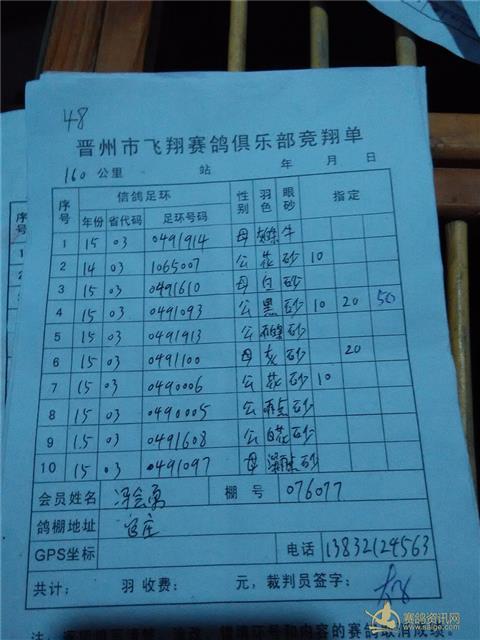 48
晋州市飞翔赛鸽俱乐部竞翔单
160 公里 站 年 月 日
序号 信鸽足环 性别 羽色 眼砂 指定
年份 省代码 足环号码
1 15 03 0491914 母 牛
2 14 03 1065007 公 花 砂 10
3 15 03 0491610 母 白 砂
4 15 03 0491093 公 黑 砂 10 20 50
5 15 03 0491913 公 砂
6 15 03 0491100 母 灰 砂 20
7 15 03 0490006 公 花 砂 10
8 15 03 0490005 公 雨点 砂
9 15 03 0491608 公 白花 砂
10 15 03 0491097 母 砂
会员姓名 棚号 076077
鸽棚地址 官庄
GPS坐标 电话 13832124563
共计: 羽 收费: 元,裁判员签字:
赛鸽资讯网
www.saige.com